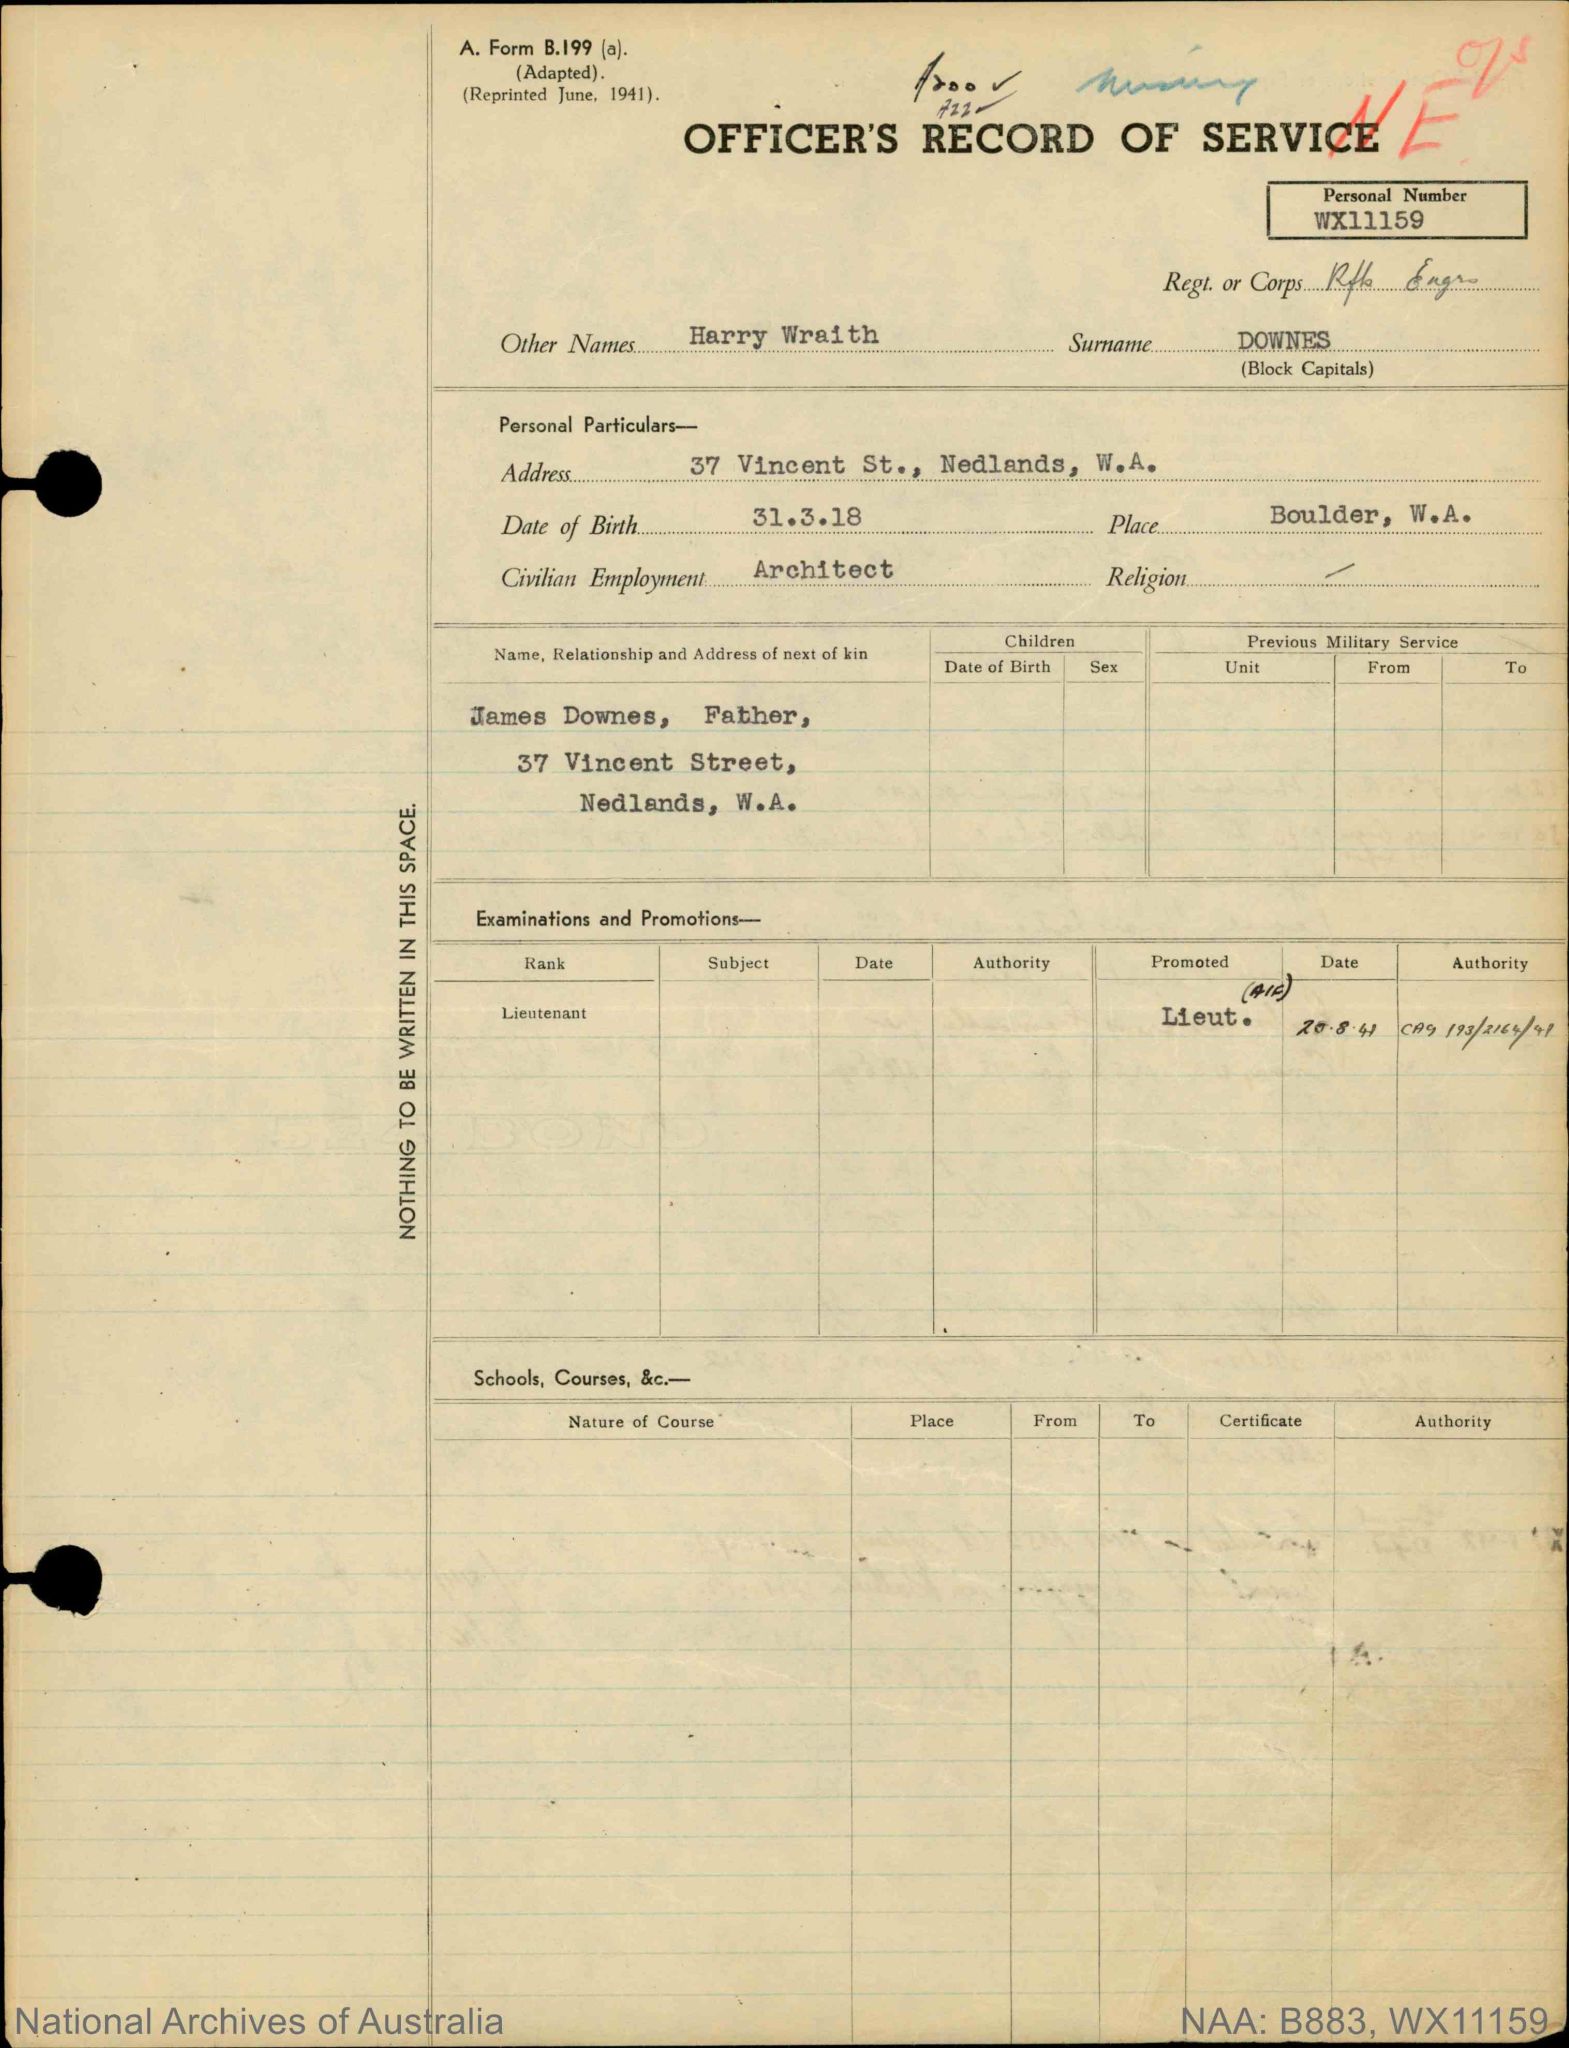 A. Form B.199 (a).
(Adapted).
(Reprinted June, 1941).
Missing
o/s
NE
OFFICER'S RECORD OF SERVICE
Personal Number
WX11159
Regt. or Corps Rfts Engrs
Other Names Harry Wraith Surname DOWNES
(Block Capitals)
Personal Particulars—
Address 37 Vincent St., Nedlands, W.A.
Date of Birth 31.3.18 Place Boulder, W.A.
Civilian Employment Architect Religion —
Name, Relationship and Address of next of kin Children Previous Military Service
Date of Birth Sex Unit From To
James Downes, Father,
37 Vincent Street,
Nedlands, W.A.
Examinations and Promotions—
Rank Subject Date Authority Promoted Date Authority
(AIF)
Lieutenant Lieut. 20.8.41 CAG 193/2164/41
Schools, Courses, &c.—
Nature of Course Place From To Certificate Authority
NOTHING TO BE WRITTEN IN THIS SPACE.
National Archives of Australia NAA: B883, WX11159